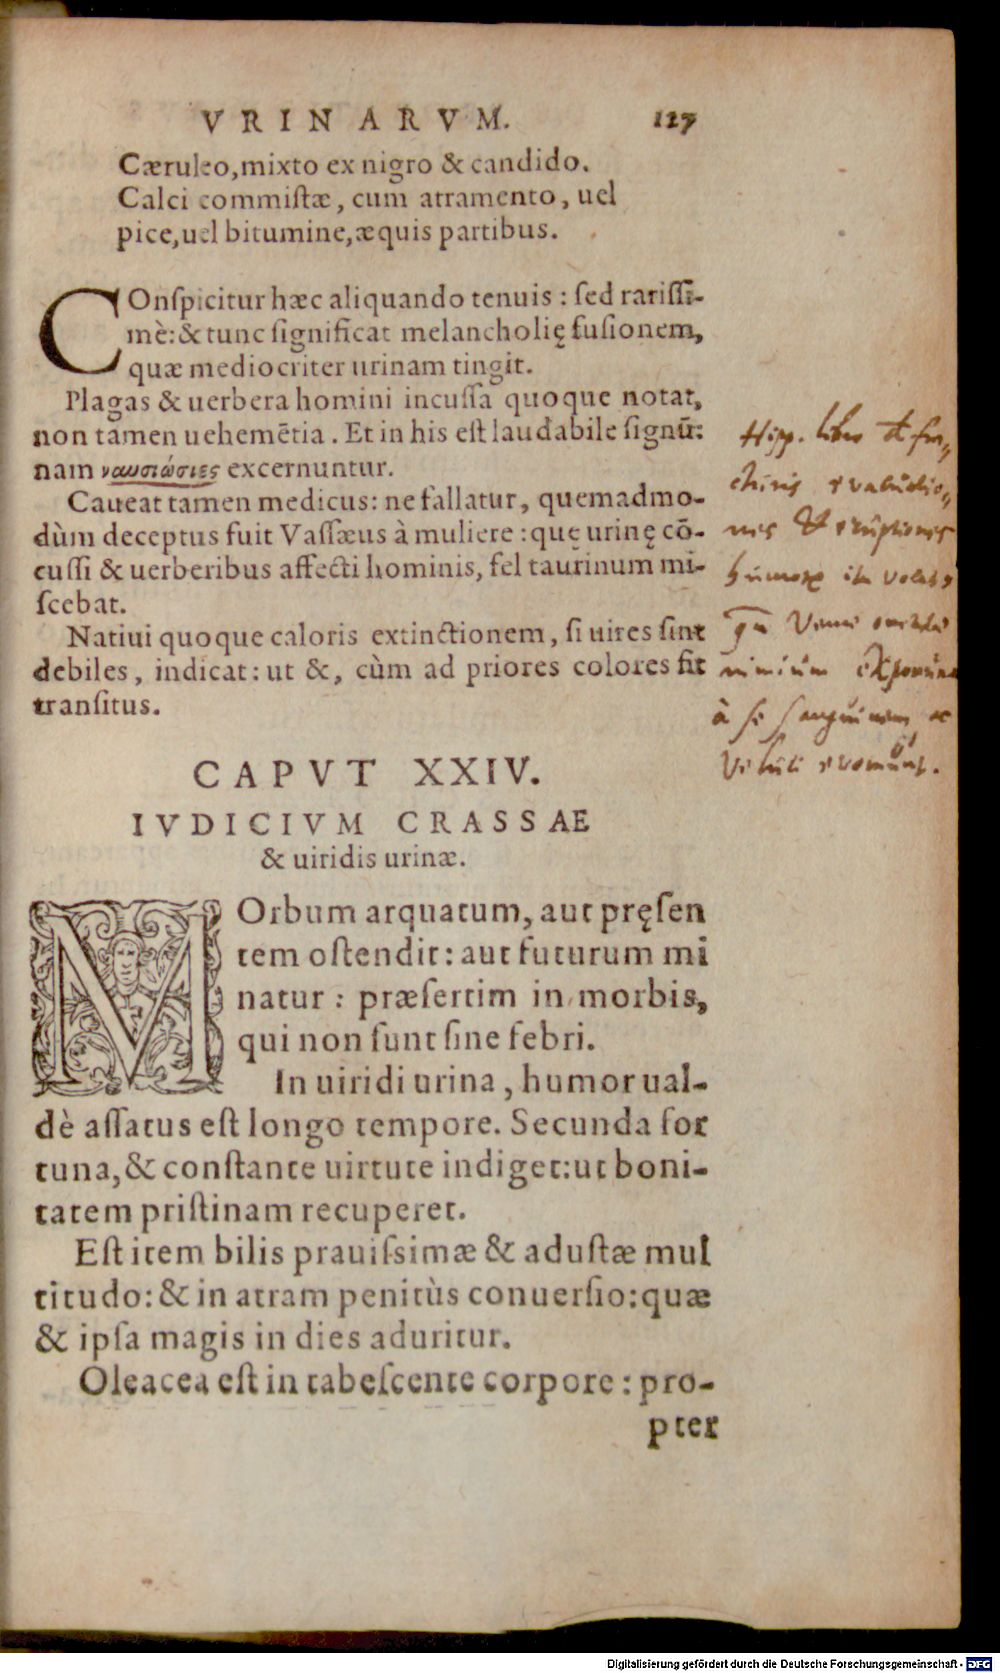 VRINARVM. 127
Cæruleo, mixto ex nigro & candido.
Calci commiſtæ, cum atramento, uel
pice, uel bitumine, æquis partibus.
COnſpicitur hæc aliquando tenuis: ſed rariſſi-
mè: & tunc ſignificat melancholię fuſionem,
quæ mediocriter urinam tingit.
Plagas & uerbera homini incuſſa quoque notat,
non tamen uehemētia. Et in his eſt laudabile ſignū:
nam ναυσιώσιες excernuntur.
Caueat tamen medicus: ne fallatur, quemadmo-
dùm deceptus fuit Vaſſæus à muliere: quę urinę cō-
cuſſi & uerberibus affecti hominis, fel taurinum mi-
ſcebat.
Natiui quoque caloris extinctionem, ſi uires ſint
debiles, indicat: ut &, cùm ad priores colores fit
tranſitus.
Hipp. libro de fra-
nes & eruptiones
nimium
à se sanguinem ac
veluti evomunt.
CAPVT XXIV.
IVDICIVM CRASSAE
& uiridis urinæ.
MOrbum arquatum, aut pręſen
tem oſtendit: aut futurum mi
natur: præſertim in morbis,
qui non ſunt ſine febri.
In uiridi urina, humor ual-
dè aſſatus eſt longo tempore. Secunda for
tuna, & conſtante uirtute indiget: ut boni-
tatem priſtinam recuperet.
Eſt item bilis prauiſsimæ & aduſtæ mul
titudo: & in atram penitùs conuerſio: quæ
& ipſa magis in dies aduritur.
Oleacea eſt in tabeſcente corpore: pro-
pter
Digitalisierung gefördert durch die Deutsche Forschungsgemeinschaft - DFG